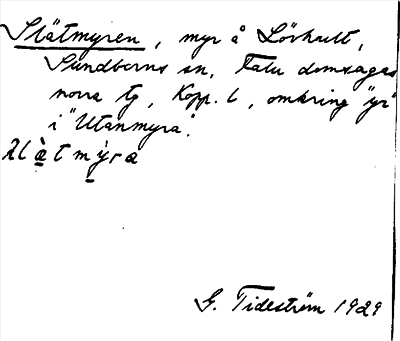 Slätmyren, myr å Lövhult,
Sundborns sn, Falu domsagas
norra tg, Kopp. l, omkring "yr"
i "Utanmyra".
G. Tideström 1929